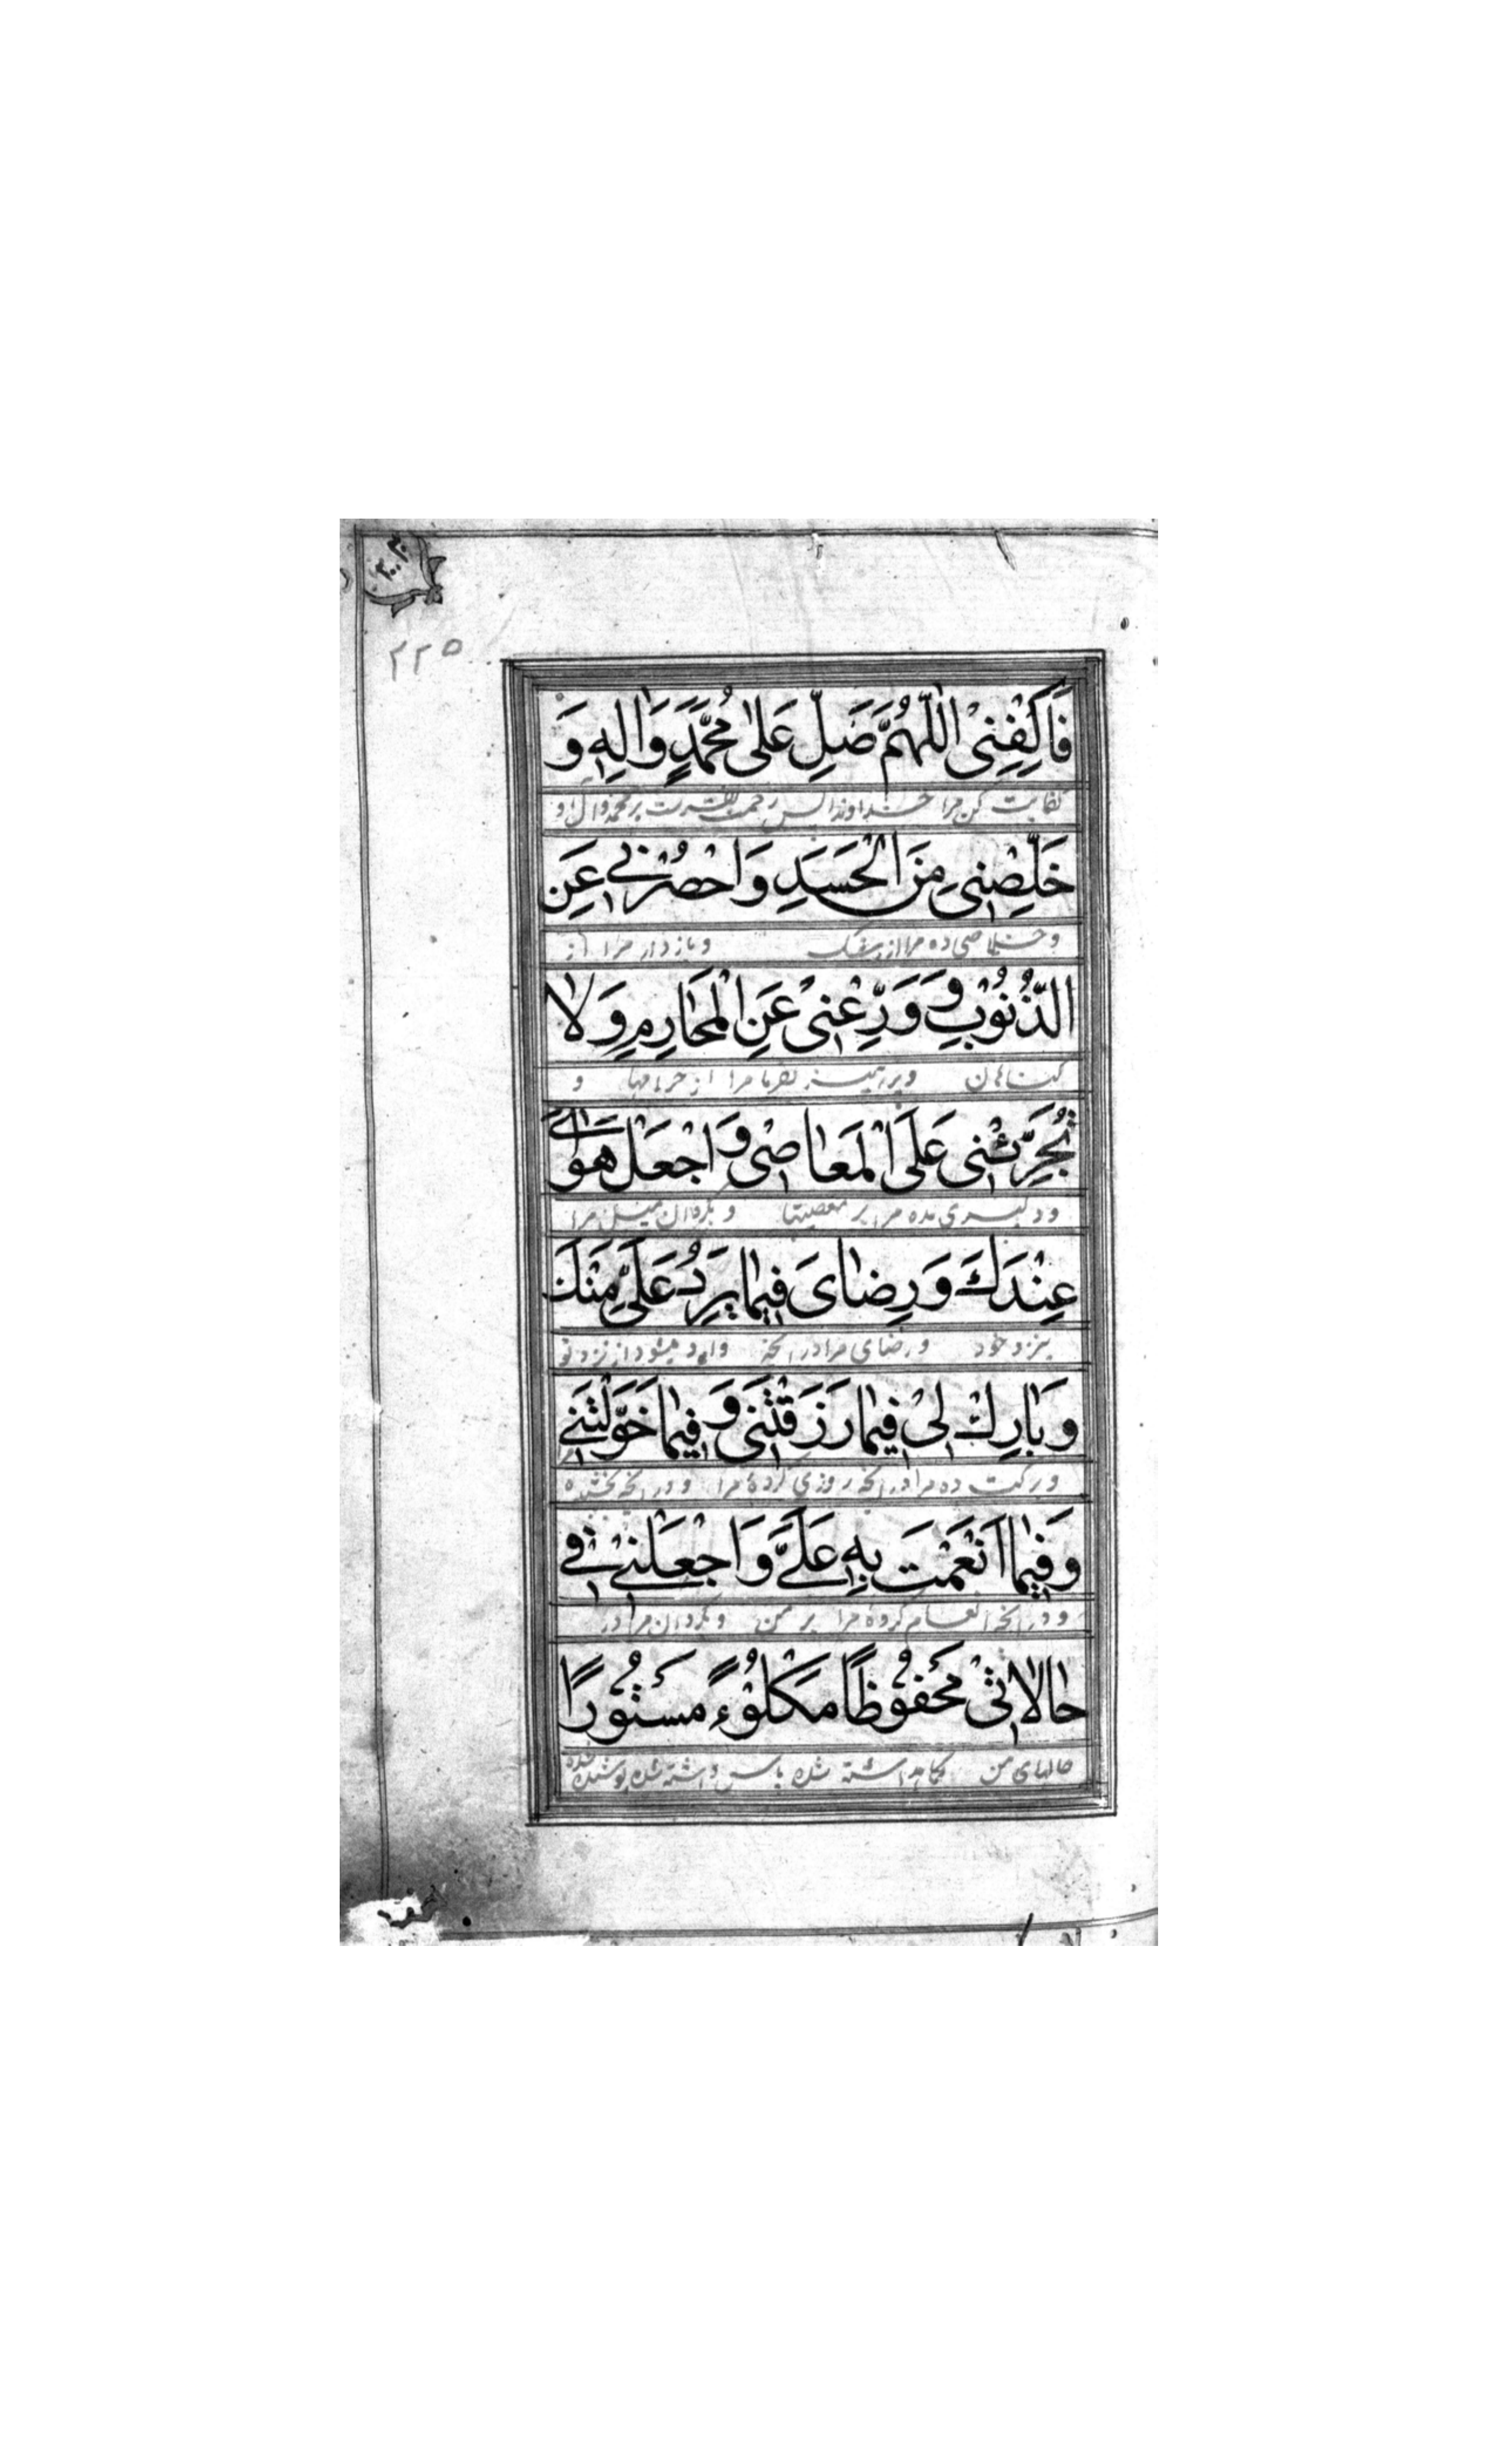 ۲۲۵
فَاكْفِنيٖ اَللّٰهُمَّ صَلِّ عَلىٰ مُحَمَّدٍ وَاٰلِهٖ وَ
كفایت كن مرا خداوندا پس رحمت بفرست بر محمد و آل او
خَلِّصْنيٖ مِنَ الْحَسَدِ وَاحْصُرْنيٖ عَنِ
و خلاصی ده مرا از رشك و بازدار مرا از
الذُّنُوْبِ وَ وَرِّعْنيٖ عَنِ الْمَحٰارِمِ وَلاٰ
كناهان و پرهیز بفرما مرا از حرامها و
تُجَرِّئْنيٖ عَلَى الْمَعٰاصيٖ وَاجْعَلْ هَوٰاىَ
و دلیری مده مرا بر معصیتها و بكردان میل مرا
عِنْدَكَ وَرِضٰاىَ فيٖمٰا يَرِدُ عَلَيَّ مِنْكَ
بنزد خود و رضای مرا در آنچه وارد میشود از نزد تو
وَبٰارِكْ ليٖ فيٖمٰا رَزَقْتَنيٖ وَفيٖمٰا خَوَّلْتَنيٖ
و بركت ده مرا در آنچه روزی كردهٔ مرا و در آنچه بخشیده
وَفيٖمٰا اَنْعَمْتَ بِهٖ عَلَيَّ وَاجْعَلْنيٖ فيٖ
و در آنچه انعام كردهٔ مرا بر من و بكردان مرا در
حٰالاٰتيٖ مَحْفُوْظًا مَكْلُوْءً مَسْتُوْرًا
حالهای من نكاهداشته شده پاس داشته شده پوشیده شده